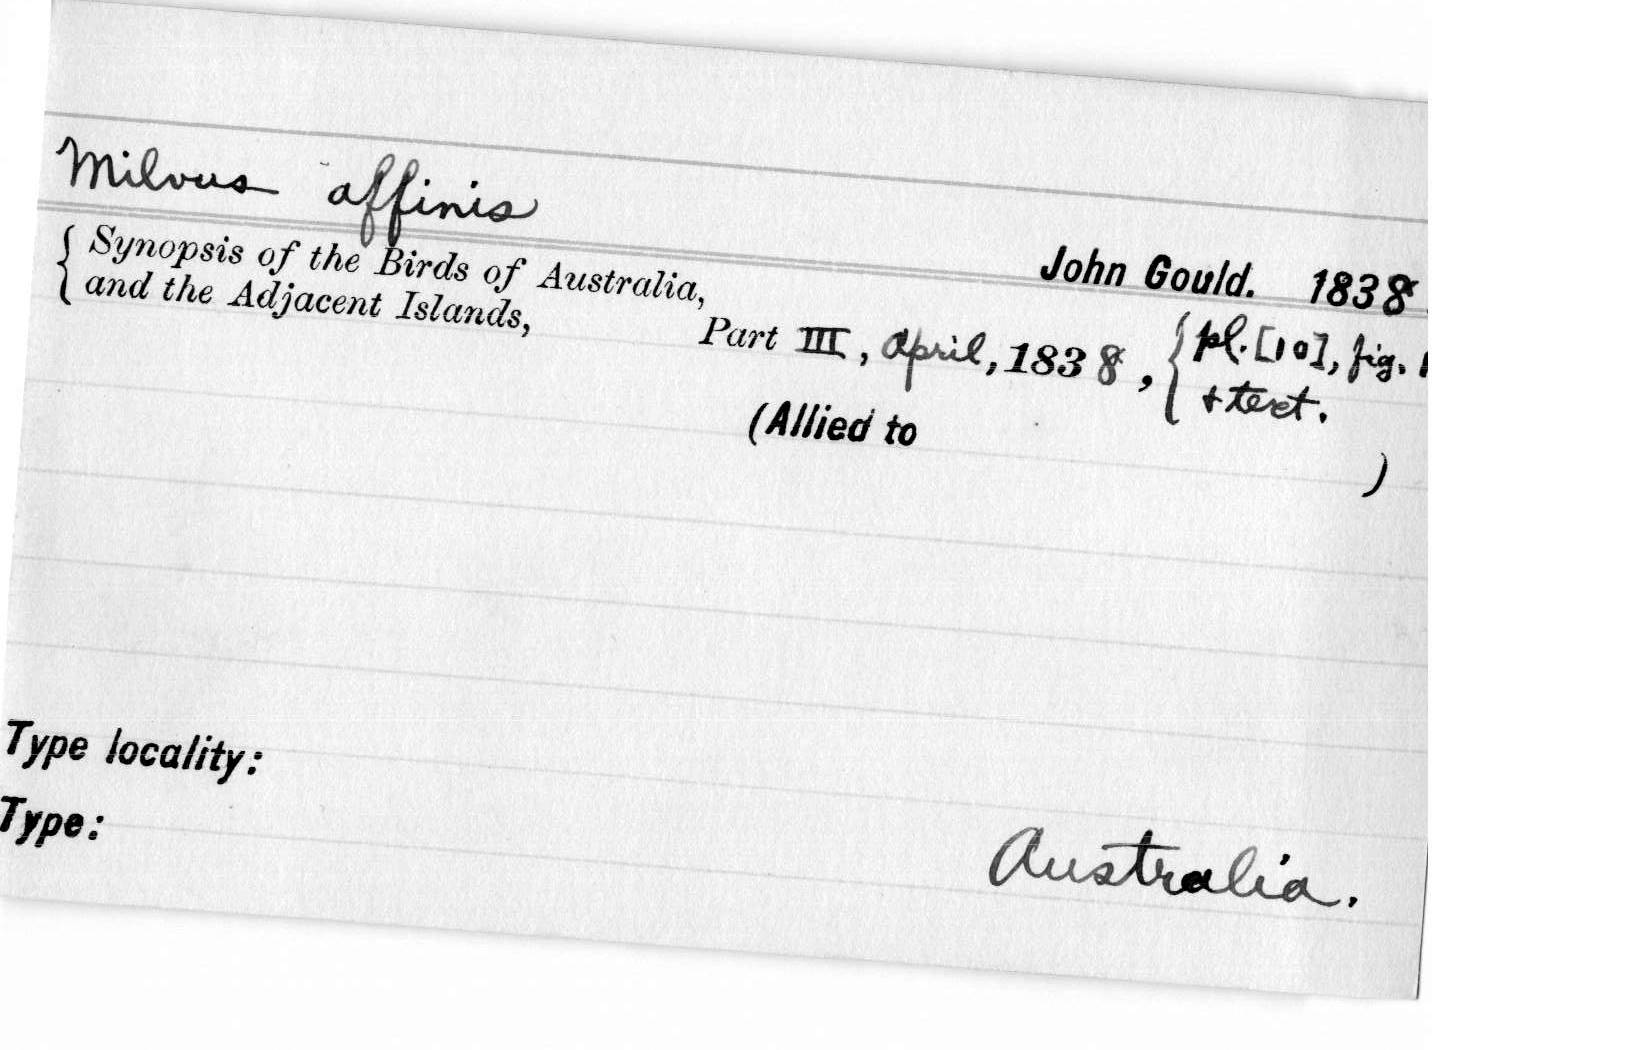 Milvus affinis
John Gould. 1838
{ Synopsis of the Birds of Australia,
and the Adjacent Islands,
Part III, April, 1838, { pl. [10], fig. 1
+ text.
(Allied to )
Type locality:
Type:
Australia.